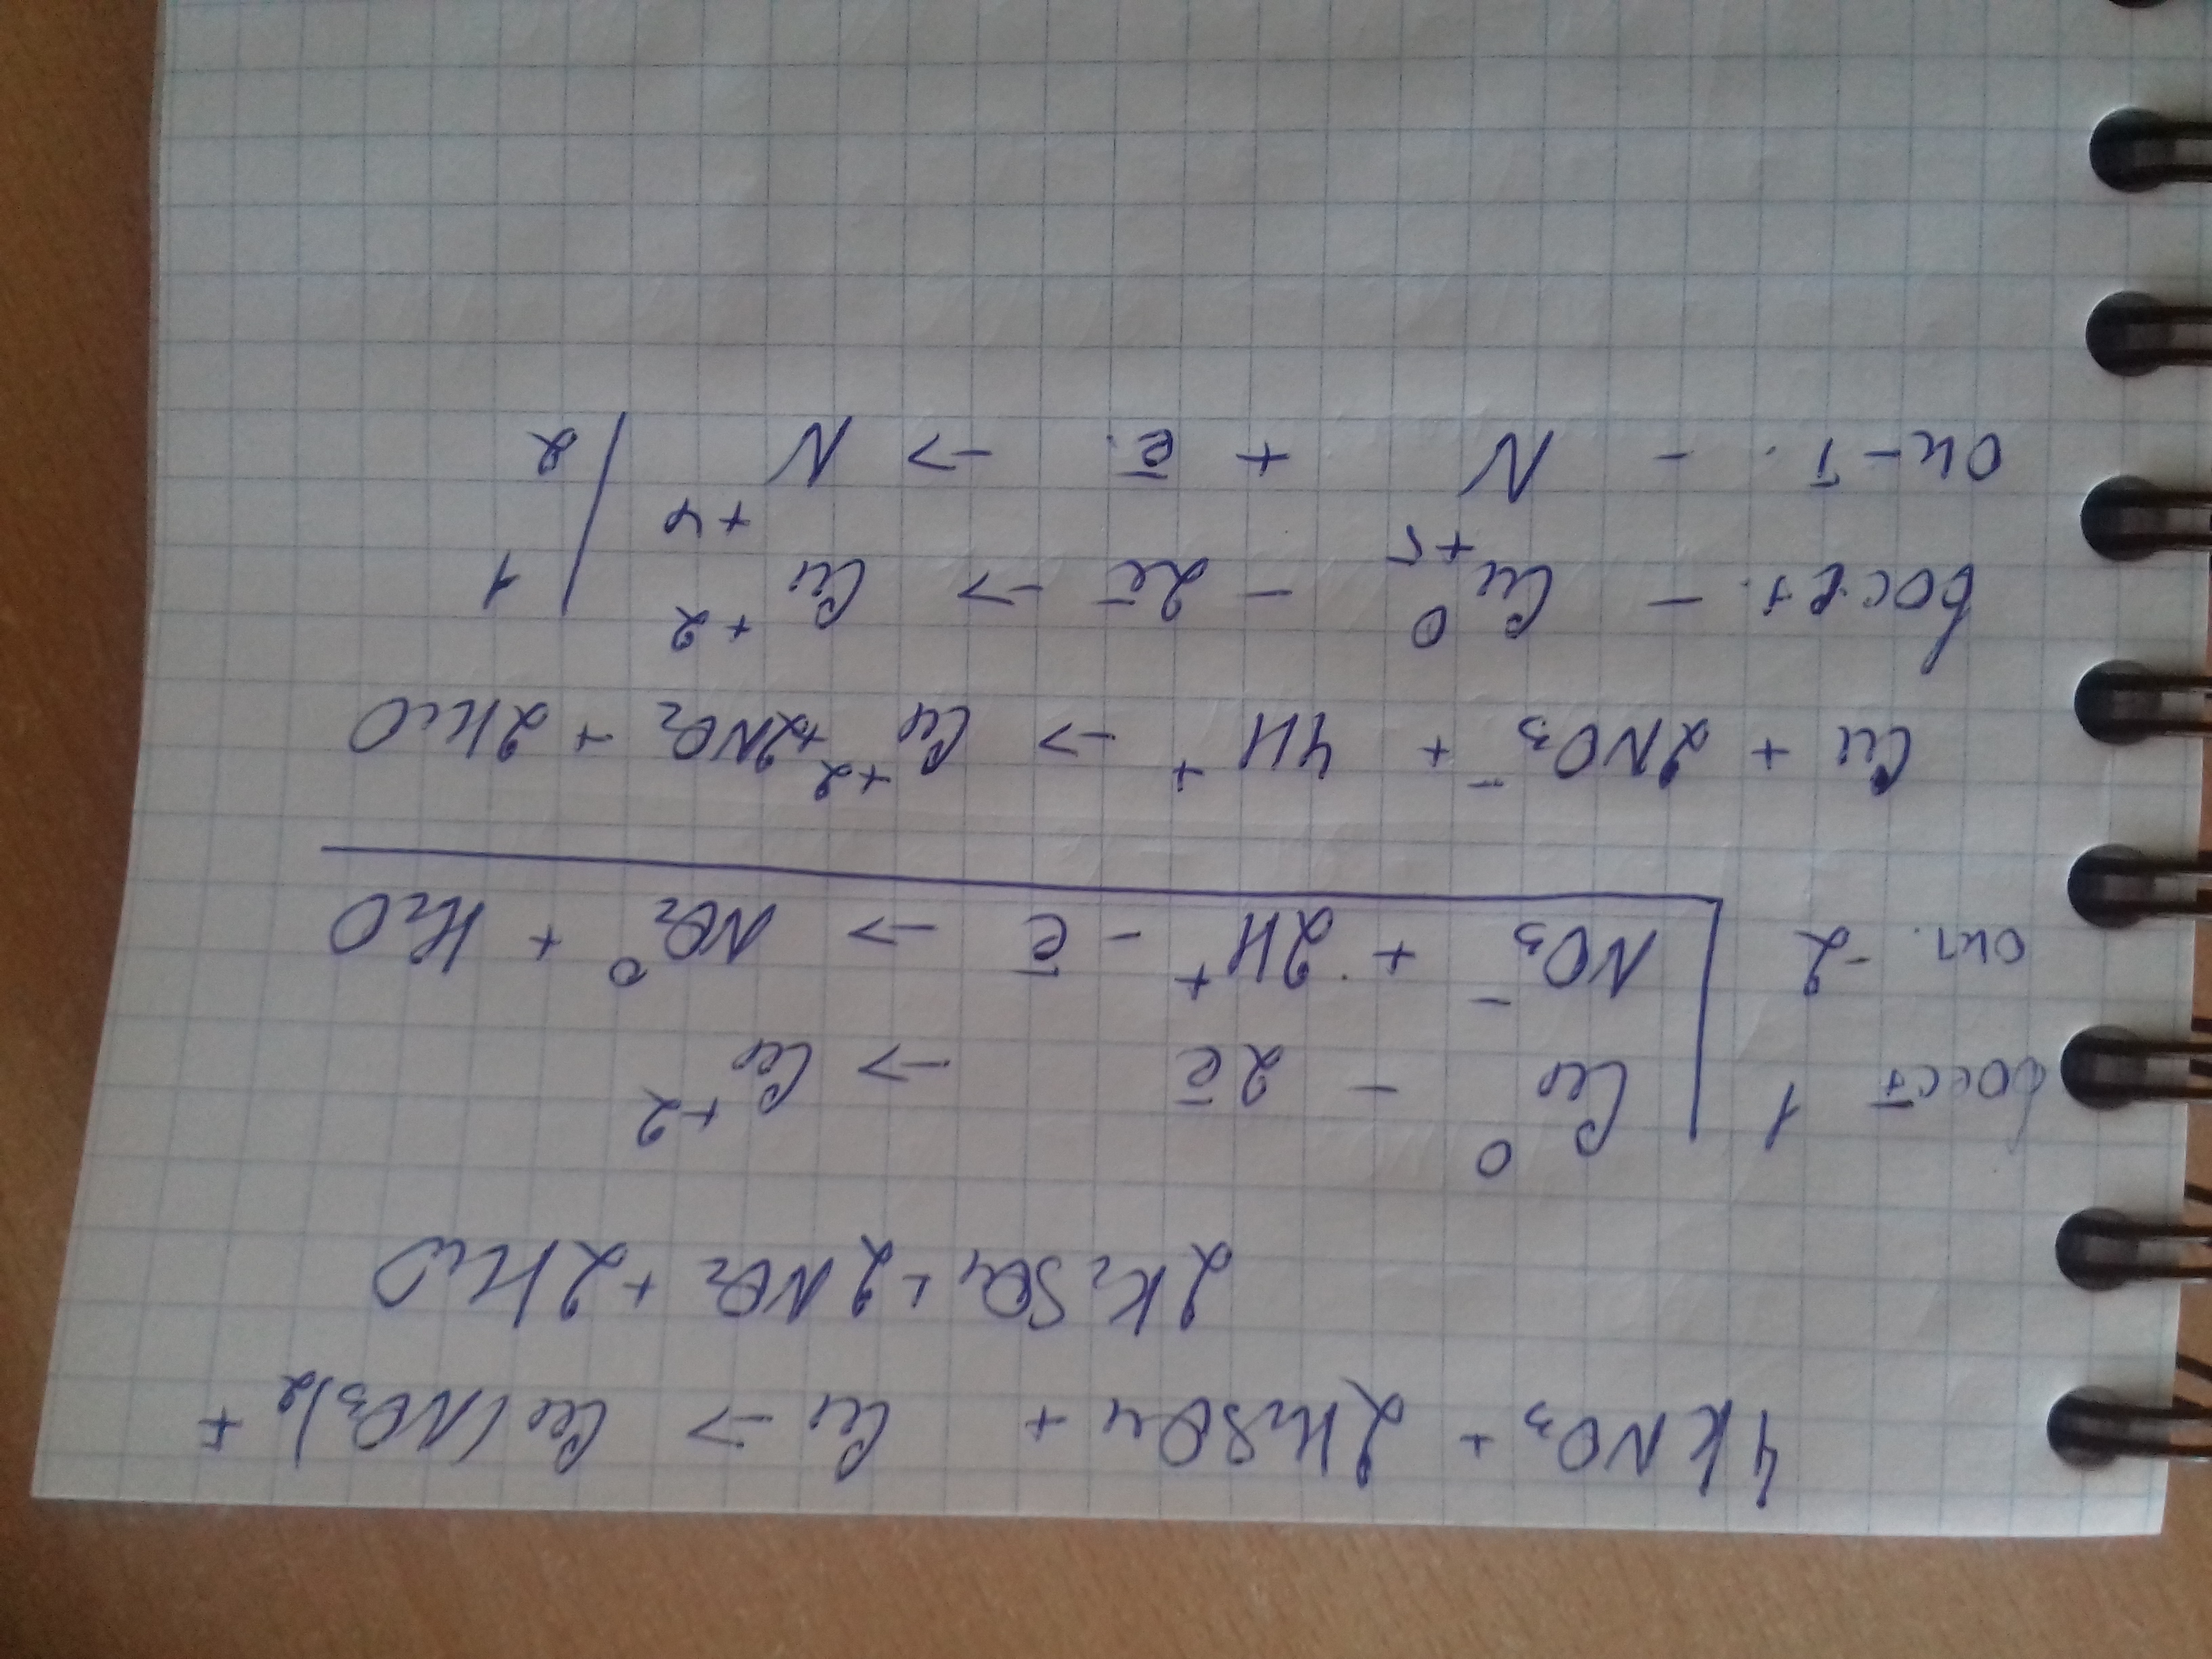 4KNO₃ + 2H₂SO₄ + Cu → Cu(NO₃)₂ +
2K₂SO₄ + 2NO₂ + 2H₂O
восст 1 | Cu⁰ - 2ē → Cu⁺²
ок. -2 | NO₃⁻ + 2H⁺ - ē → NO₂⁰ + H₂O
Cu + 2NO₃⁻ + 4H⁺ → Cu⁺² + 2NO₂ + 2H₂O
восст. - Cu⁰ - 2ē → Cu⁺² | 1
ок-т. - N⁺⁵ + ē → N⁺⁴ | 2